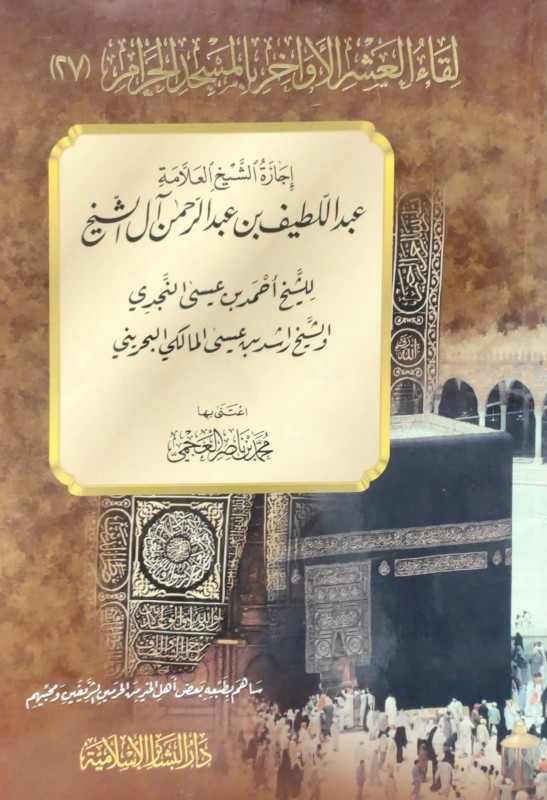 لقاء العشر الأواخر بالمسجد الحرام (٢٧)
إجازة الشيخ العلامة
عبد اللطيف بن عبد الرحمن آل الشيخ
للشيخ أحمد بن عيسى النجدي
والشيخ راشد بن عيسى المالكي البحريني
اعتنى بها
محمد بن ناصر العجمي
ساهم بطبعه بعض أهل الخير من الحرمين الشريفين ومحبيهم
دار البشائر الإسلامية